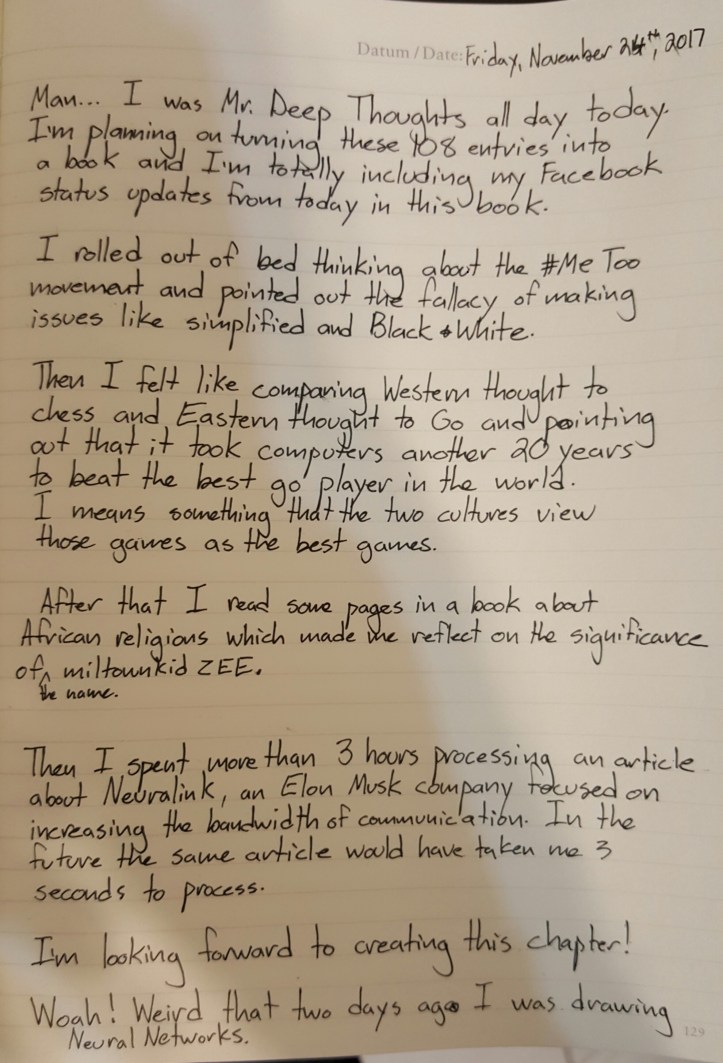 Datum / Date: Friday, November 24th, 2017
Man... I was Mr. Deep Thoughts all day today.
I'm planning on turning these 108 entries into
a book and I'm totally including my Facebook
status updates from today in this book.
I rolled out of bed thinking about the #Me Too
movement and pointed out the fallacy of making
issues like simplified and Black & White.
Then I felt like comparing Western thought to
chess and Eastern thought to Go and pointing
out that it took computers another 20 years
to beat the best go player in the world.
I means something that the two cultures view
those games as the best games.
After that I read some pages in a book about
African religions which made me reflect on the significance
of ^ miltownkid ZEE.
the name.
Then I spent more than 3 hours processing an article
about Neuralink, an Elon Musk company focused on
increasing the bandwidth of communication. In the
future the same article would have taken me 3
seconds to process.
I'm looking forward to creating this chapter!
Woah! Weird that two days ago I was drawing
Neural Networks.
129